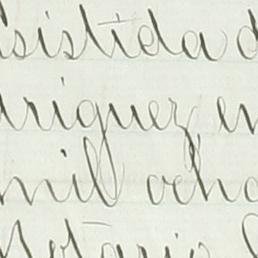 sistida d
riguez en
mil ocho
Notario